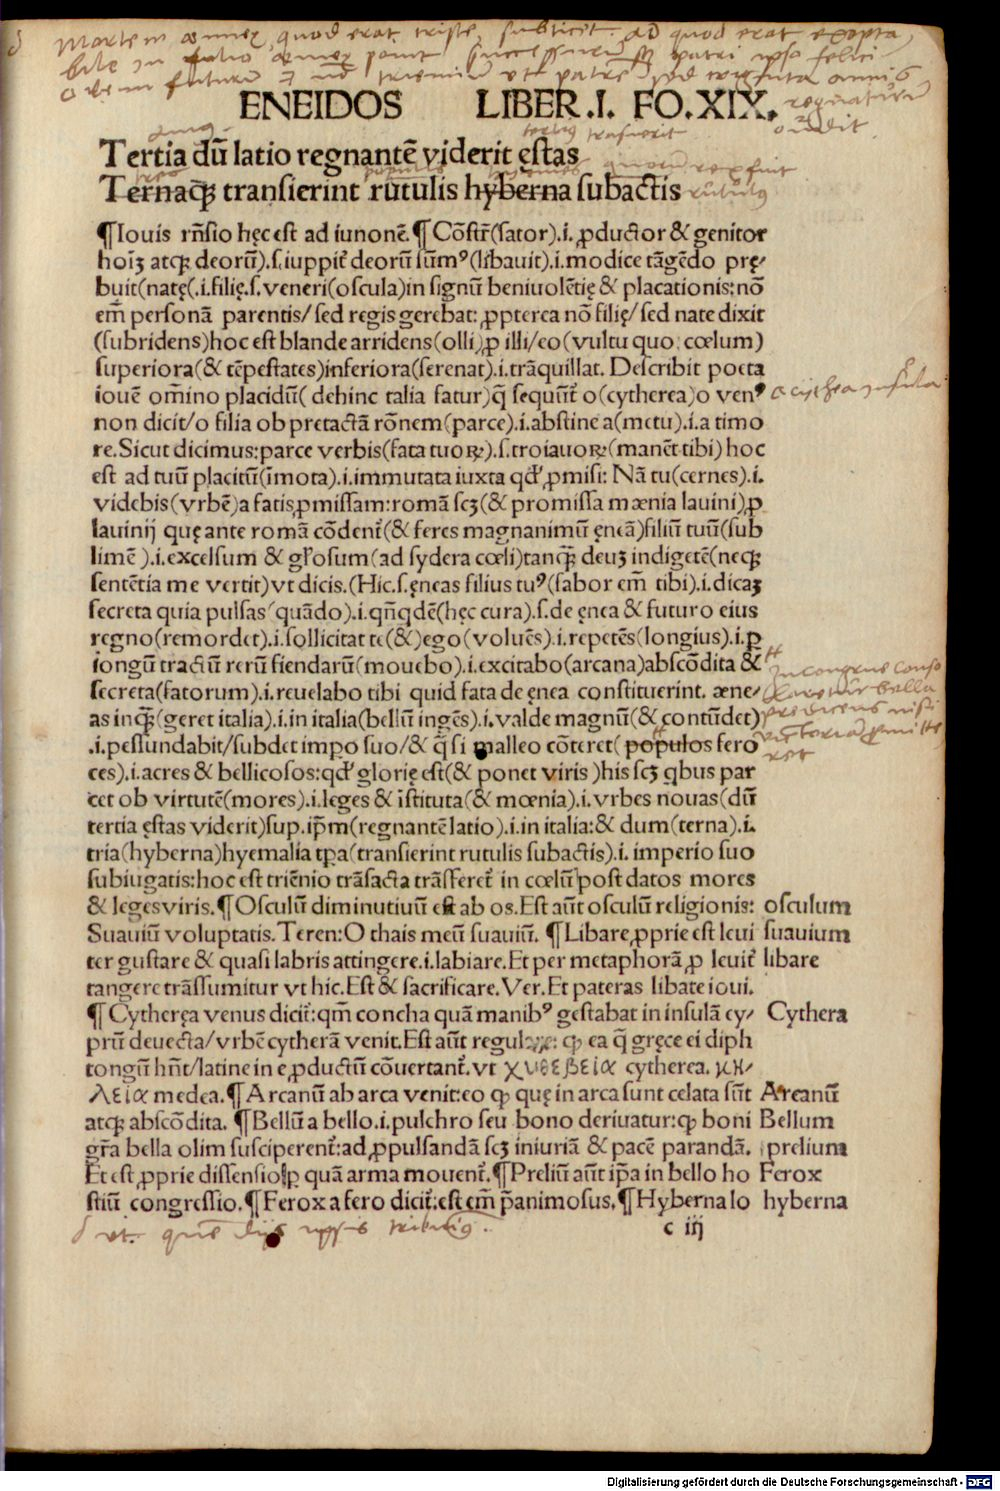 Mortem æneę quod erat triste, subticet. ad quod erat exopta
bile in filio æneę ponit successurũ patri
ENEIDOS LIBER .I. FO.XIX.
regnaturũ
Tertia dũ latio regnantẽ viderit ęstas
Ternacꝗ transierint rutulis hyberna subactis
rutulus
¶Iouis rñsio hęc est ad iunonẽ.¶Cõstr̃(sator).i.ꝓductor & genitor
hoĩʒ atqꝫ deorũ).s.iuppit̃ deorũ sũmꝰ(libauit).i.modice tãgẽdo prę-
buit(natę(.i.filię.s.veneri(oscula)in signũ beniuolẽtię & placationis:nõ
em̃ personã parentis/sed regis gerebat:ꝓpterea nõ filię/sed nate dixit
(subridens)hoc est blande arridens(olli)ꝓ illi/eo(vultu quo cœlum)
superiora(& tẽpestates)inferiora(serenat).i.trãquillat. Describit poeta
iouẽ om̃ino placidũ( dehinc talia fatur)q̃ sequũt̃ o(cytherea)o venꝰ
o cytherea insula
non dicit/o filia ob pretactã rõnem(parce).i.abstine a(metu).i.a timo
re.Sicut dicimus:parce verbis(fata tuoꝝ).s.troiauoꝝ(manẽt tibi) hoc
est ad tuũ placitũ(ĩmota).i.immutata iuxta qđ ꝓmisi: Nã tu(cernes).i.
videbis(vrbẽ)a fatis ꝓmissam:romã scʒ(& promissa mænia lauini)ꝓ
lauinij quę ante romã cõdent̃(& feres magnanimũ ęneã)filiũ tuũ(sub
limẽ).i.excelsum & gl̃osum(ad sydera cœli)tanqꝫ deuʒ indigetẽ(neqꝫ
sentẽtia me vertit)vt dicis.(Hic.s.ęneas filius tuꝰ(fabor em̃ tibi).i.dicaʒ
secreta quia pulsas(quãdo).i.qñqdẽ(hęc cura).s.de ęnea & futuro eius
regno(remordet).i.sollicitat te(&)ego(voluẽs).i.repetẽs(longius).i.ꝑ
longũ tractũ rerũ fiendarũ(mouebo).i.excitabo(arcana)abscõdita &
incongrue conso
secreta(fatorum).i.reuelabo tibi quid fata de ęnea constituerint. æne-
laretur bella
as inqꝫ(geret italia).i.in italia(bellũ ingẽs).i.valde magnũ(& contũdet)
predicens nisi
.i.pessundabit/subdet impo suo/& q̃ si malleo cõteret( populos fero
victoriã ꝓmitte
ret
ces).i.acres & bellicosos:qđ glorię est(& ponet viris )his scʒ qbus par
cet ob virtutẽ(mores).i.leges & ĩstituta(& mœnia).i.vrbes nouas(dũ
tertia ęstas viderit)sup.ip̃m(regnantẽ latio).i.in italia:& dum(terna).i.
tria(hyberna)hyemalia tp̃a(transierint rutulis subactis).i. imperio suo
subiugatis:hoc est triẽnio trãsacta trãsferet̃ in cœlũ post datos mores
& leges viris.¶Osculũ diminutiuũ est ab os.Est aũt osculũ religionis: osculum
Suauiũ voluptatis.Teren:O thais meũ suauiũ. ¶Libare ꝓprie est leui suauium
ter gustare & quasi labris attingere.i.labiare.Et per metaphorã ꝓ leuit̃ libare
tangere trãssumitur vt hic.Est & sacrificare.Ver.Et pateras libate ioui.
¶Cytheręa venus dicit̃:qm̃ concha quã manibꝰ gestabat in insulã cy- Cythera
prũ deuecta/vrbẽ cytherã venit.Est aũt regul
tongũ hñt/latine in e ꝓductũ cõuertant̃. vt χυθεβεια cytherea. μη-
λεια medea.¶Arcanũ ab arca venit:eo ꝙ quę in arca sunt celata sũt Arcanũ
atqꝫ abscõdita. ¶Bellũ a bello.i.pulchro seu bono deriuatur:ꝙ boni Bellum
gr̃a bella olim susciperent̃:ad ꝓpulsandã scʒ iniuriã & pacẽ parandã. prelium
Et est ꝓprie dissensio ꝑ quã arma mouent̃.¶Preliũ aũt ip̃a in bello ho Ferox
stiũ congressio.¶Ferox a fero dicit̃:est em̃ p̃animosus.¶Hyberna lo hyberna
c iij
Digitalisierung gefördert durch die Deutsche Forschungsgemeinschaft - DFG